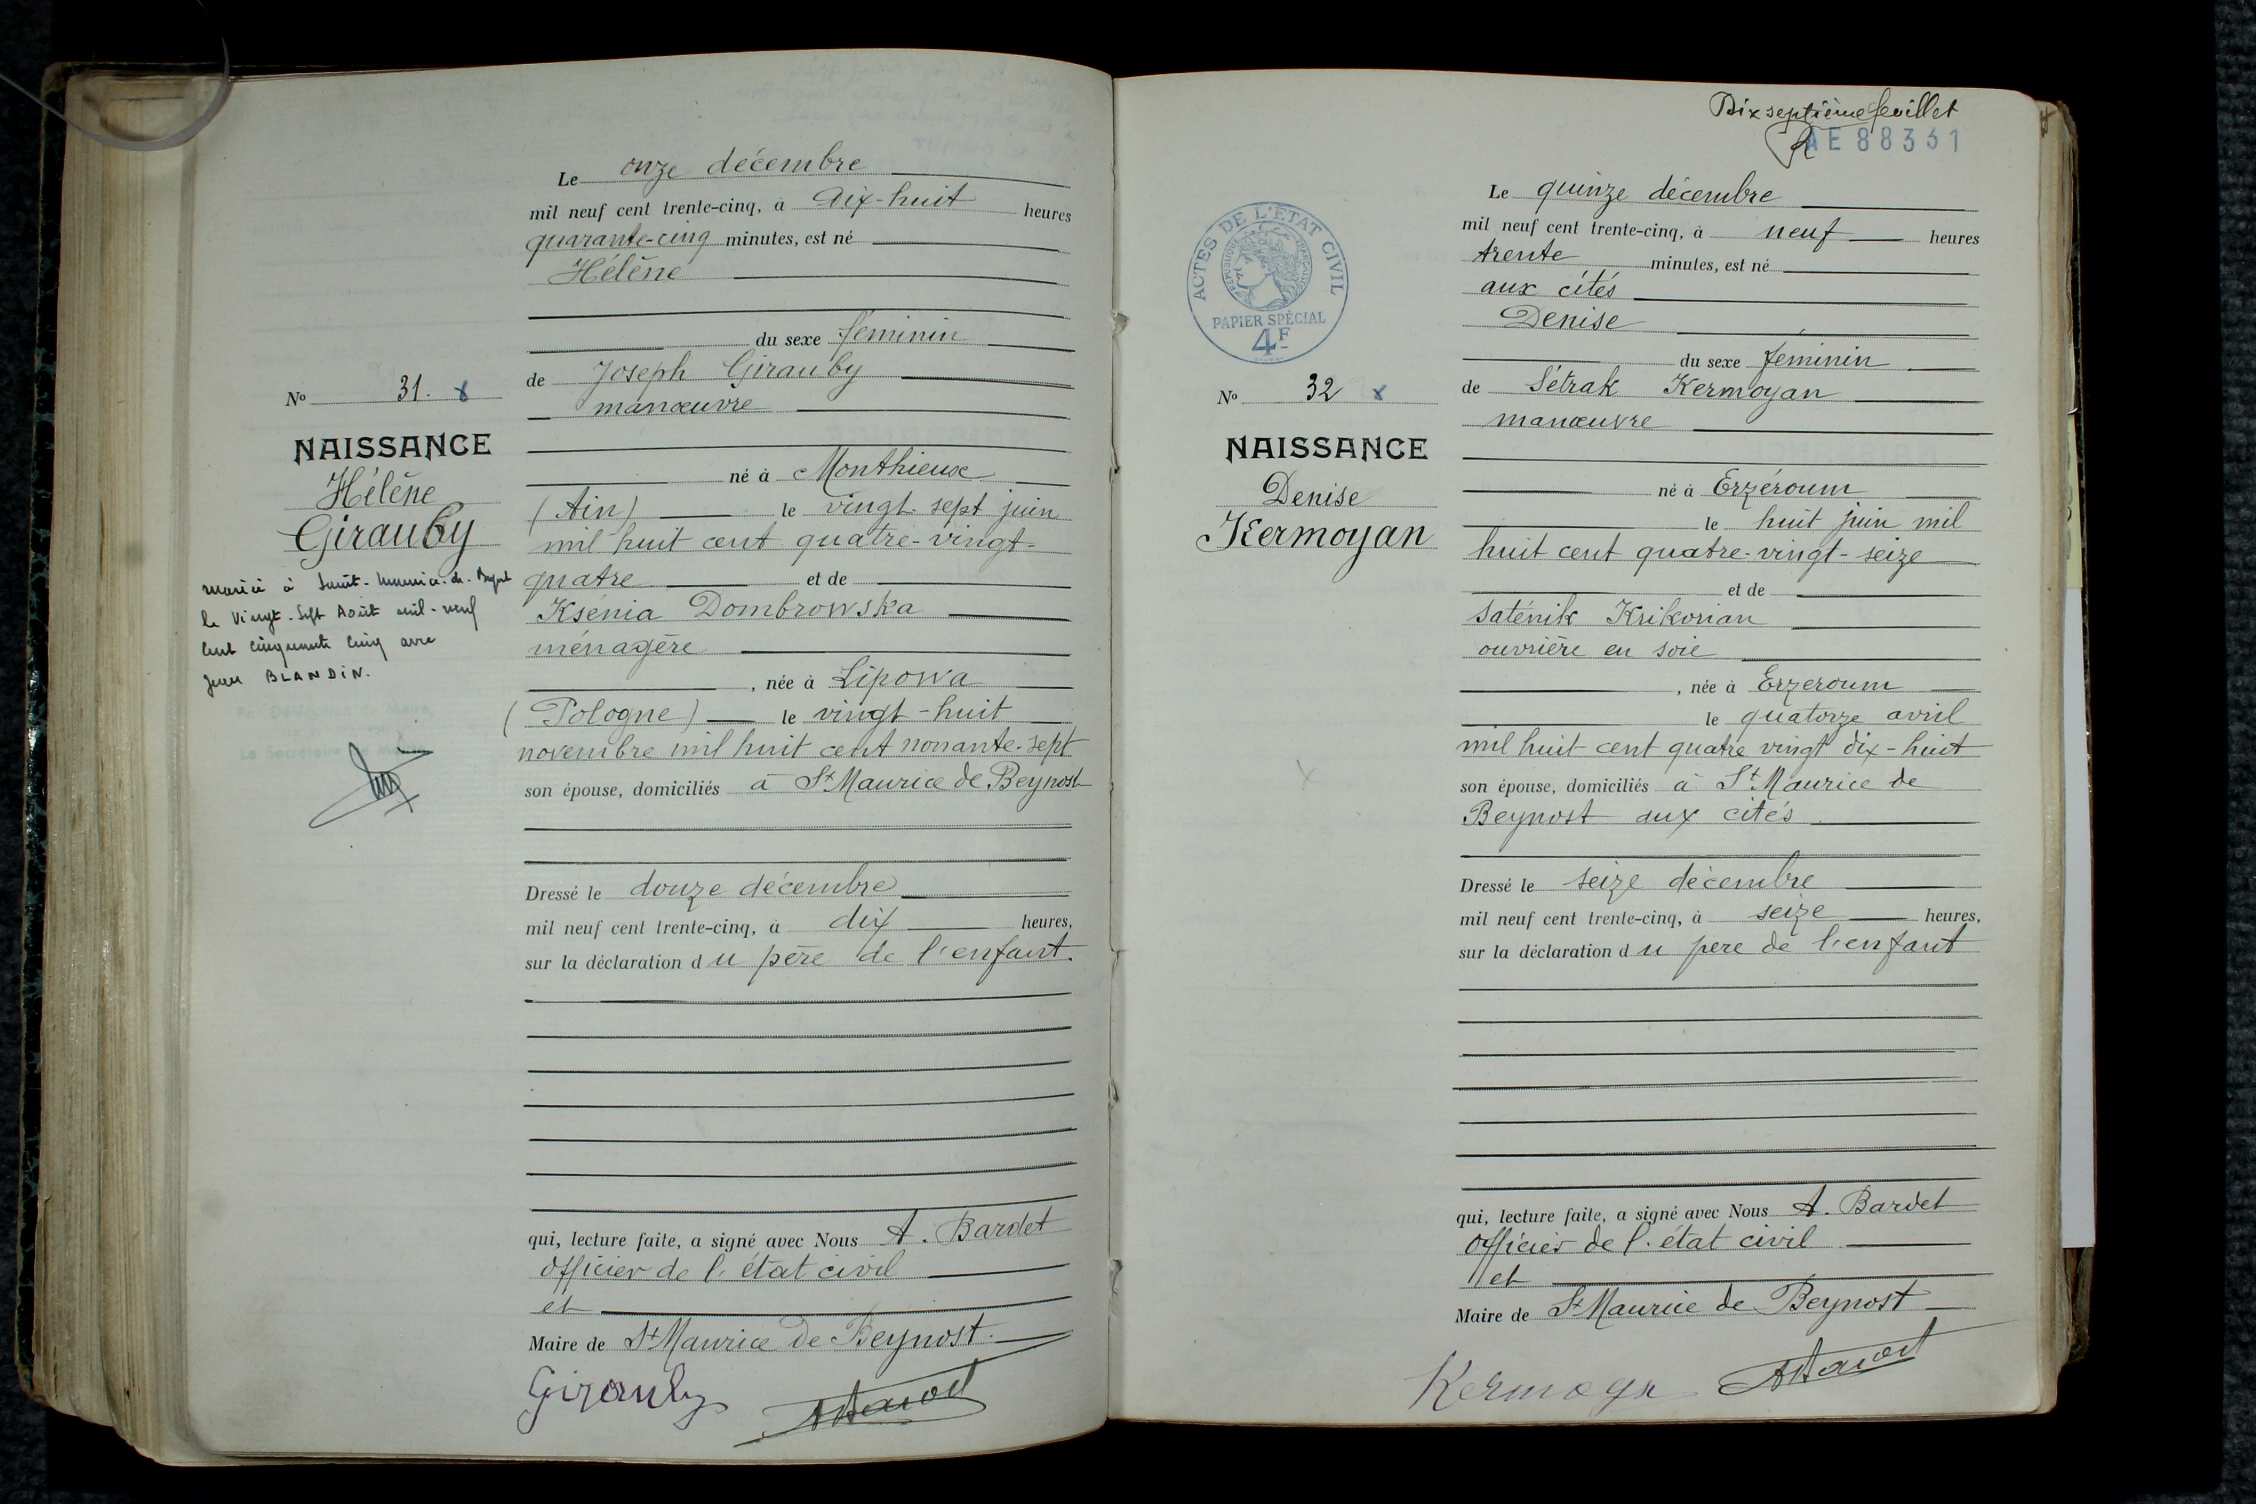 Le onze décembre
mil neuf cent trente-cinq, à dix-huit heures
quarante-cinq minutes, est né
Hélène
du sexe féminin
de Joseph Girauby
manœuvre
né à Monthieux
(Ain) le vingt-sept juin
mil huit cent quatre-vingt-
quatre et de
Ksénia Dombrowska
ménagère
, née à Lipowa
(Pologne) le vingt-huit
novembre mil huit cent nonante-sept
son épouse, domiciliés à St Maurice de Beynost
Dressé le douze décembre
mil neuf cent trente-cinq, à dix heures,
sur la déclaration du père de l'enfant.
qui, lecture faite, a signé avec Nous A. Bardet
officier de l'état civil
et
Maire de St Maurice de Beynost.
Girauby
No 31.
NAISSANCE
Hélène
Girauby
mariée à Saint-Maurice-de-Beynost
le Vingt-Sept Août mil-neuf
cent cinquante cinq avec
Jean BLANDIN.
Le Secrétaire de Mairie
Dix septième feuillet
AE 88331
ACTES DE L'ETAT CIVIL
PAPIER SPÉCIAL
4F
No 32
NAISSANCE
Denise
Kermoyan
Le quinze décembre
mil neuf cent trente-cinq, à neuf heures
trente minutes, est né
aux cités
Denise
du sexe féminin
de Sétrak Kermoyan
manœuvre
né à Erzéroum
le huit juin mil
huit cent quatre-vingt-seize
et de
Saténik Krikorian
ouvrière en soie
, née à Erzeroum
le quatorze avril
mil huit cent quatre vingt dix-huit
son épouse, domiciliés à St Maurice de
Beynost aux cités
Dressé le seize décembre
mil neuf cent trente-cinq, à seize heures,
sur la déclaration du père de l'enfant
qui, lecture faite, a signé avec Nous A. Bardet
officier de l'état civil
et
Maire de St Maurice de Beynost
Kermoyan
ABardet